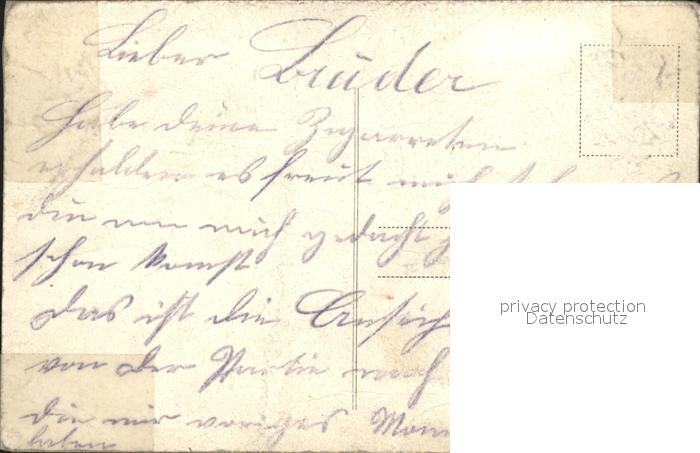 Lieber Bruder
Habe deine Zigarreten
erhalden es freut mich
du an mich gedacht
schon komst
Das ist die Ansich
von der Partie nach
die wir voriges Mon
haben
privacy protection
Datenschutz